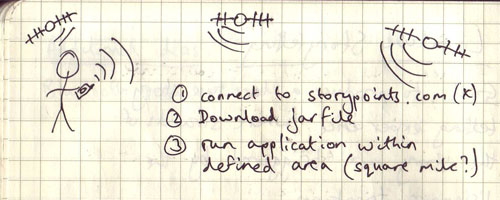 ① connect to storypoints.com (x)
② Download .jar file
③ run application within
defined area (square mile?)